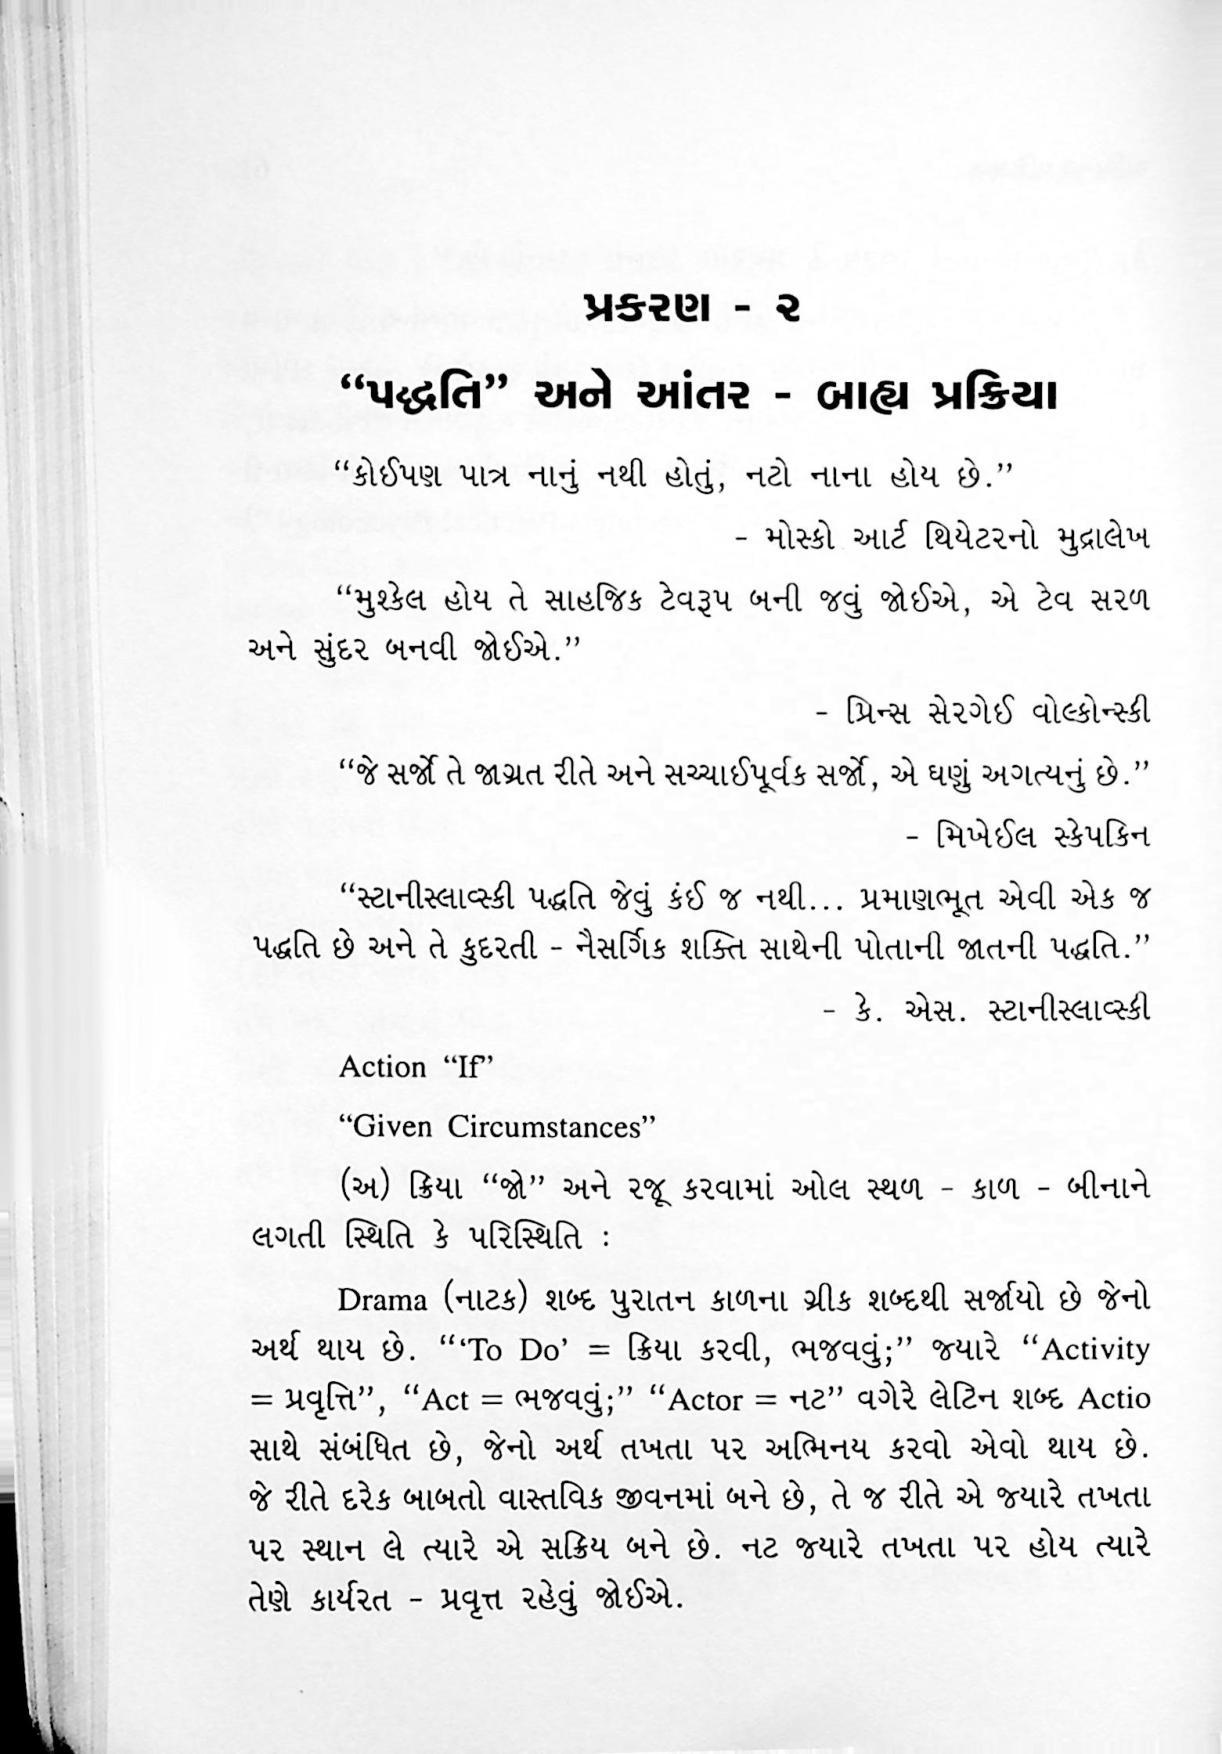 પ્રકરણ - ૨
“પદ્ધતિ” અને આંતર - બાહ્ય પ્રક્રિયા
“કોઈપણ પાત્ર નાનું નથી હોતું, નટો નાના હોય છે.”
- મોસ્કો આર્ટ થિયેટરનો મુદ્રાલેખ
“મુશ્કેલ હોય તે સાહજિક ટેવરૂપ બની જવું જોઈએ, એ ટેવ સરળ
અને સુંદર બનવી જોઈએ.”
- પ્રિન્સ સેરગેઈ વોલ્કોન્સ્કી
“જે સર્જો તે જાગ્રત રીતે અને સચ્ચાઈપૂર્વક સર્જો, એ ઘણું અગત્યનું છે.”
- મિખેઈલ સ્કેપકિન
“સ્ટાનીસ્લાવ્સ્કી પદ્ધતિ જેવું કંઈ જ નથી... પ્રમાણભૂત એવી એક જ
પદ્ધતિ છે અને તે કુદરતી - નૈસર્ગિક શક્તિ સાથેની પોતાની જાતની પદ્ધતિ.”
- કે. એસ. સ્ટાનીસ્લાવ્સ્કી
Action “If”
“Given Circumstances”
(અ) ક્રિયા “જો” અને રજૂ કરવામાં ઓલ સ્થળ - કાળ - બીનાને
લગતી સ્થિતિ કે પરિસ્થિતિ :
Drama (નાટક) શબ્દ પુરાતન કાળના ગ્રીક શબ્દથી સર્જાયો છે જેનો
અર્થ થાય છે. “‘To Do’ = ક્રિયા કરવી, ભજવવું;” જ્યારે “Activity
= પ્રવૃત્તિ”, “Act = ભજવવું;” “Actor = નટ” વગેરે લેટિન શબ્દ Actio
સાથે સંબંધિત છે, જેનો અર્થ તખતા પર અભિનય કરવો એવો થાય છે.
જે રીતે દરેક બાબતો વાસ્તવિક જીવનમાં બને છે, તે જ રીતે એ જ્યારે તખતા
પર સ્થાન લે ત્યારે એ સક્રિય બને છે. નટ જ્યારે તખતા પર હોય ત્યારે
તેણે કાર્યરત - પ્રવૃત્ત રહેવું જોઈએ.